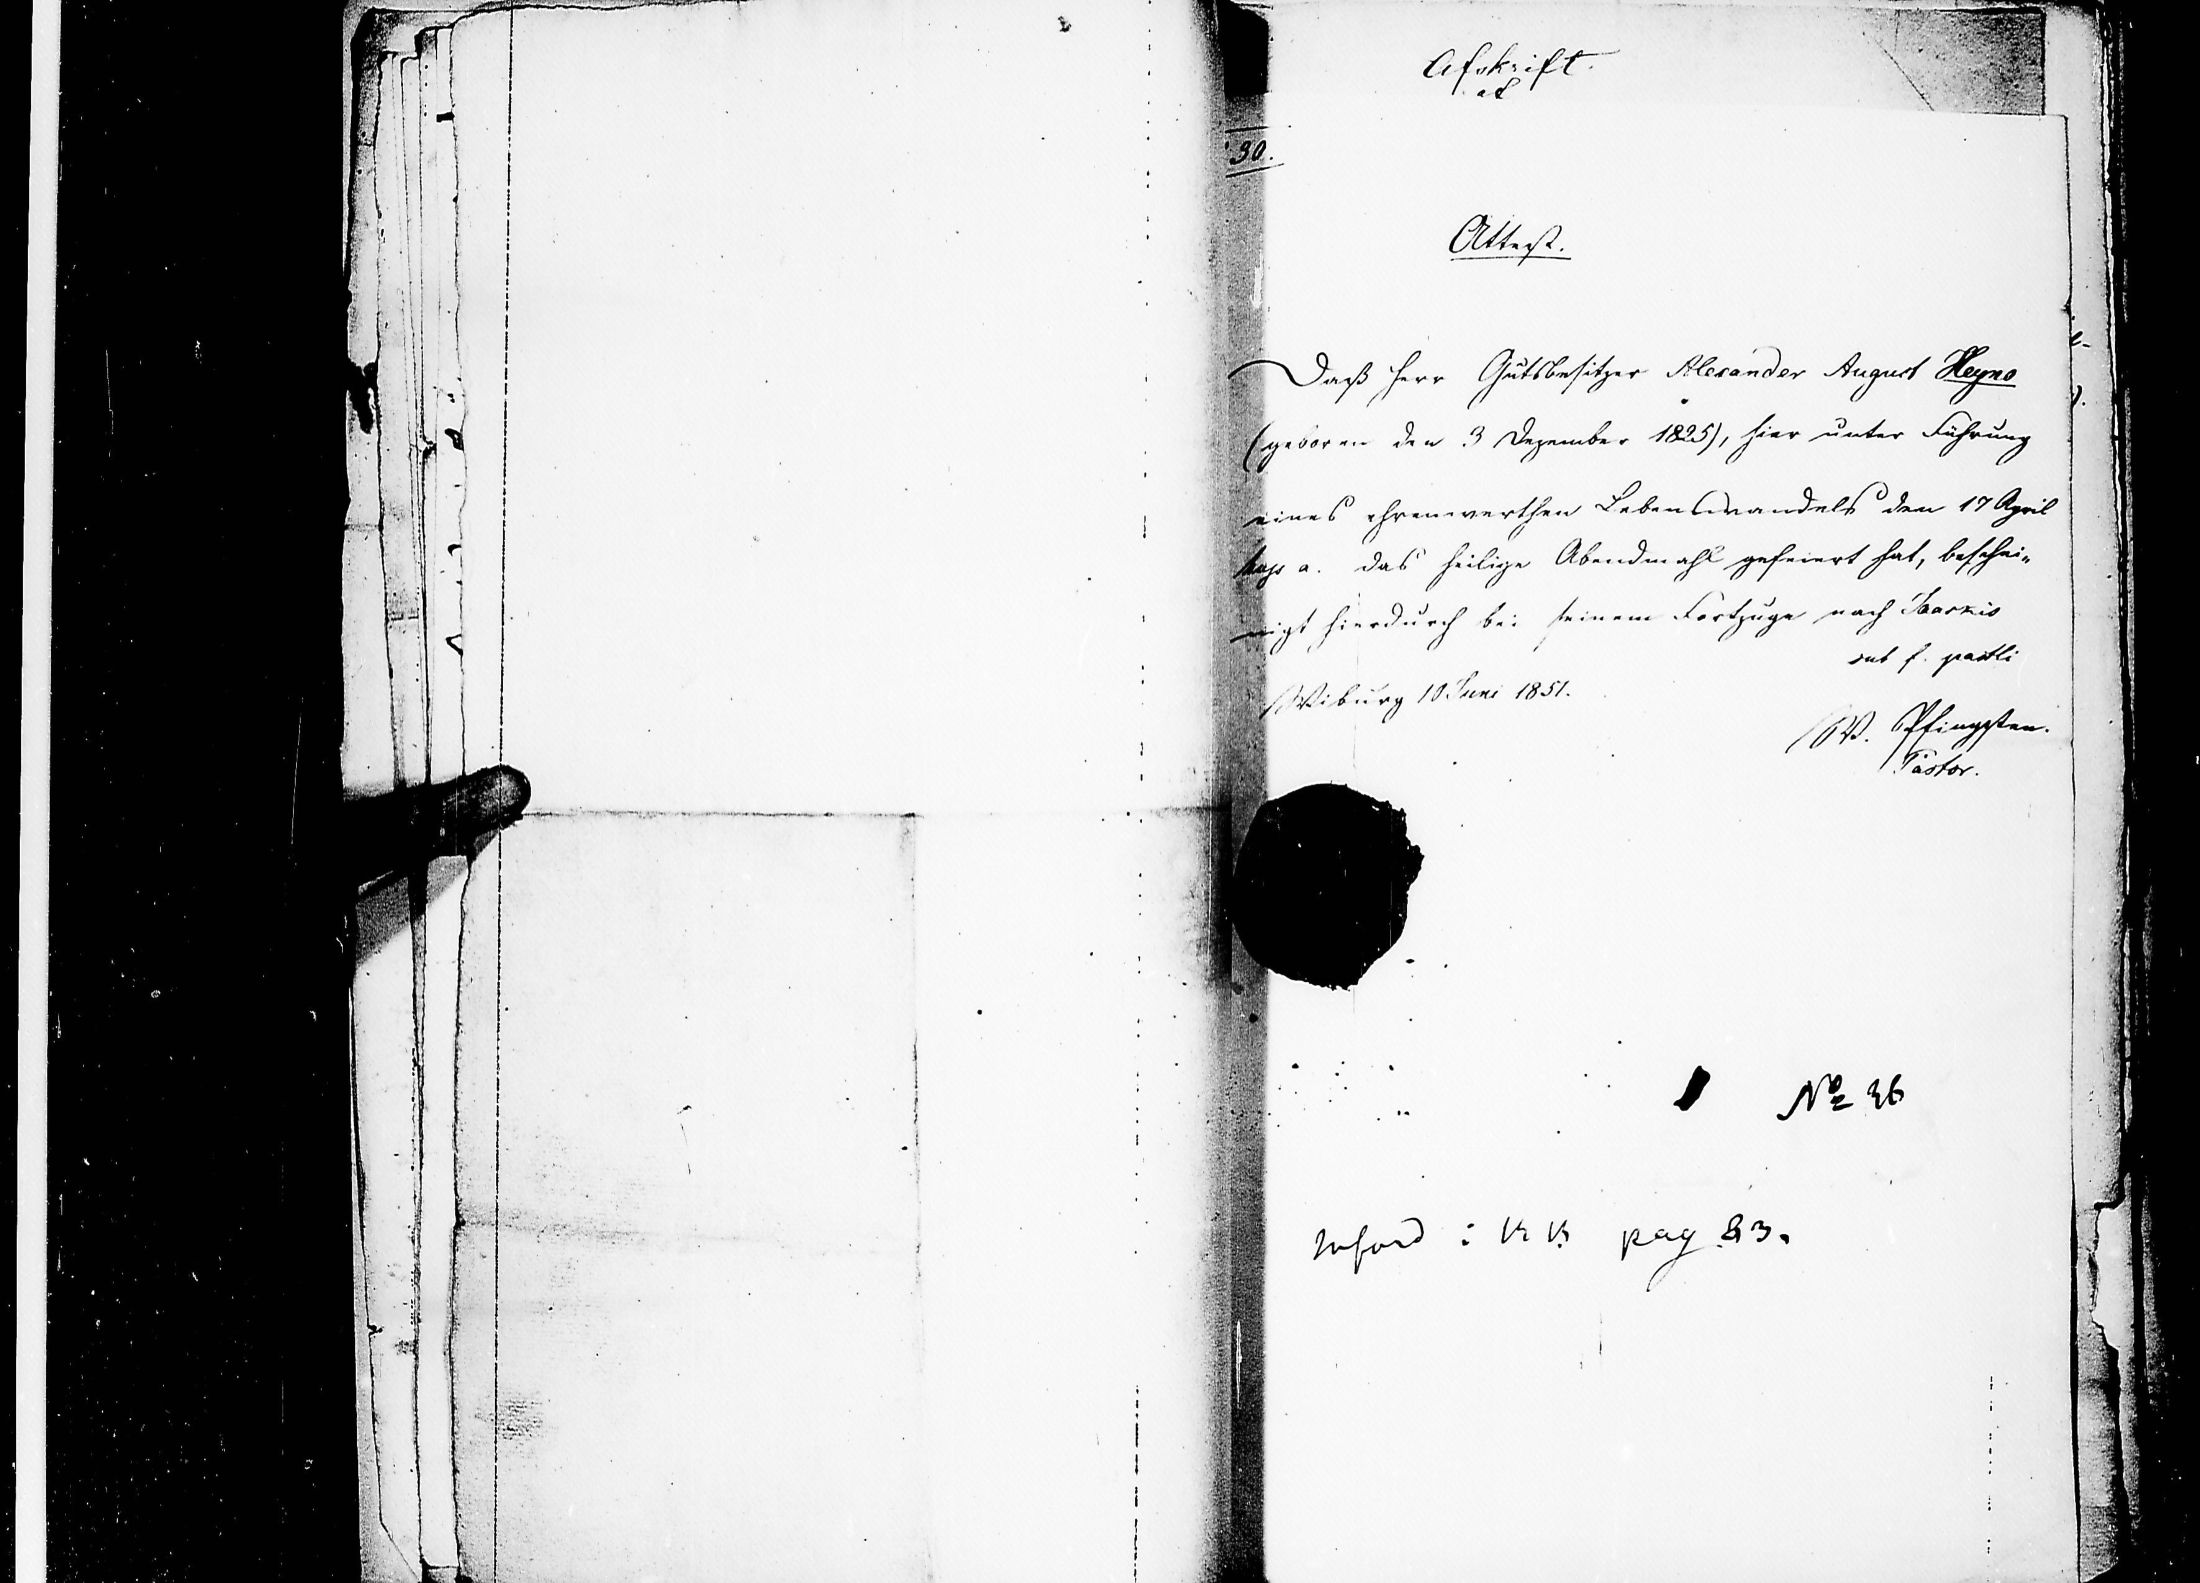 Afskrift.
af
30.
Attest.
Daß Herr Gutsbesitzer Alexander August Heyno
(geboren den 3 Dezember 1825), hier unter Führung
eines ehrenwerthen Lebenswandels den 17 April
a. das heilige Abendmahl gefeiert hat, beschei-
nigt hierdurch bei seinem Fortzuge nach
sub f. pastli
Wiburg 10 Juni 1851.
W. Pfingsten.
Pastor.
No 36
Införd: KB pag 83.